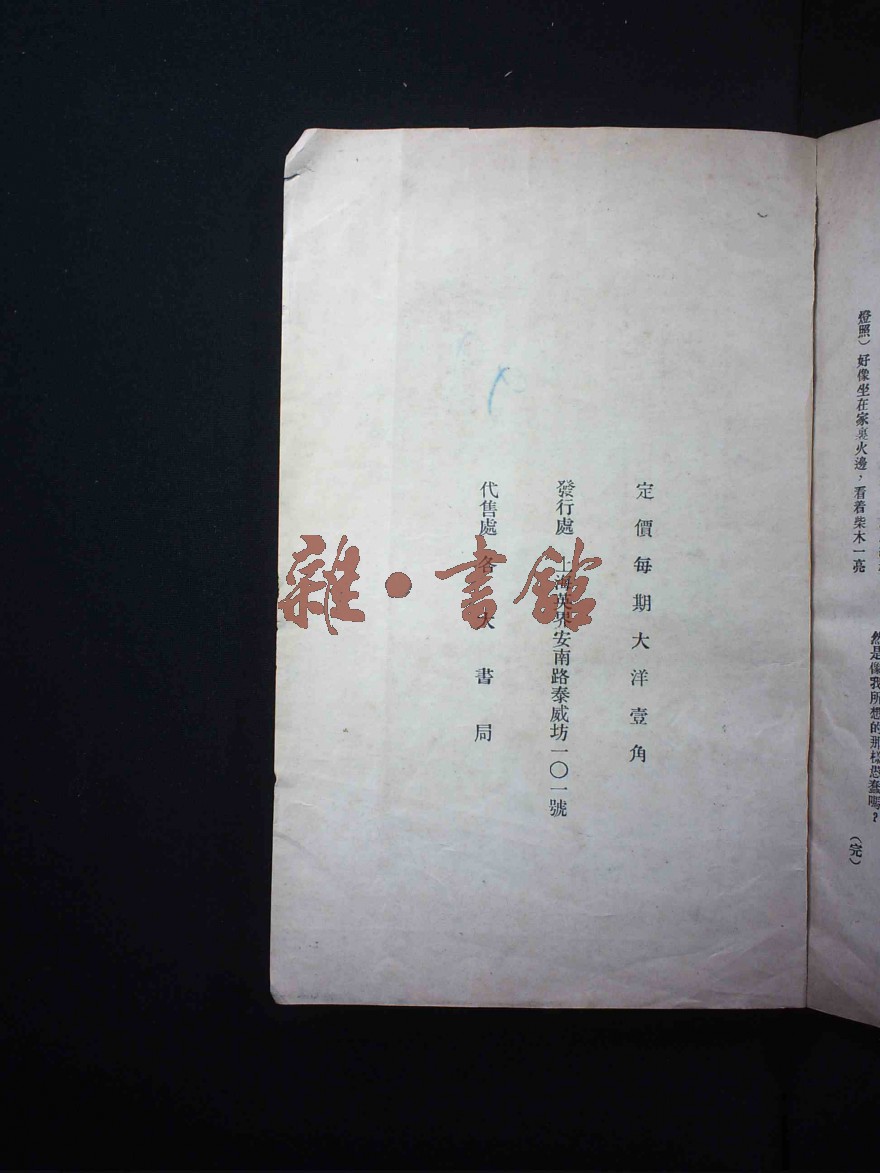 燈照）好像坐在家裏火邊，看着柴木一亮
然是像我所想的那樣愚蠢嗎？
（完）
定價每期大洋壹角
發行處 上海英界安南路泰威坊一〇一號
代售處 各大書局
雜·書館